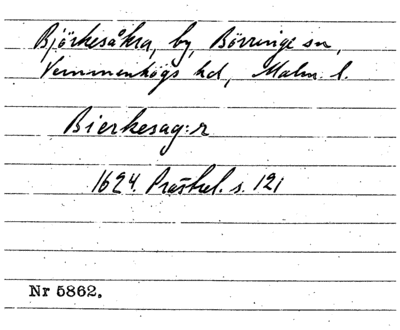 Björkesåkra, by, Börringe sn,
Vemmenhögs hd, Malm. l.
Bierkesag:r
1624. Prästrel. s. 121
Nr 5862.